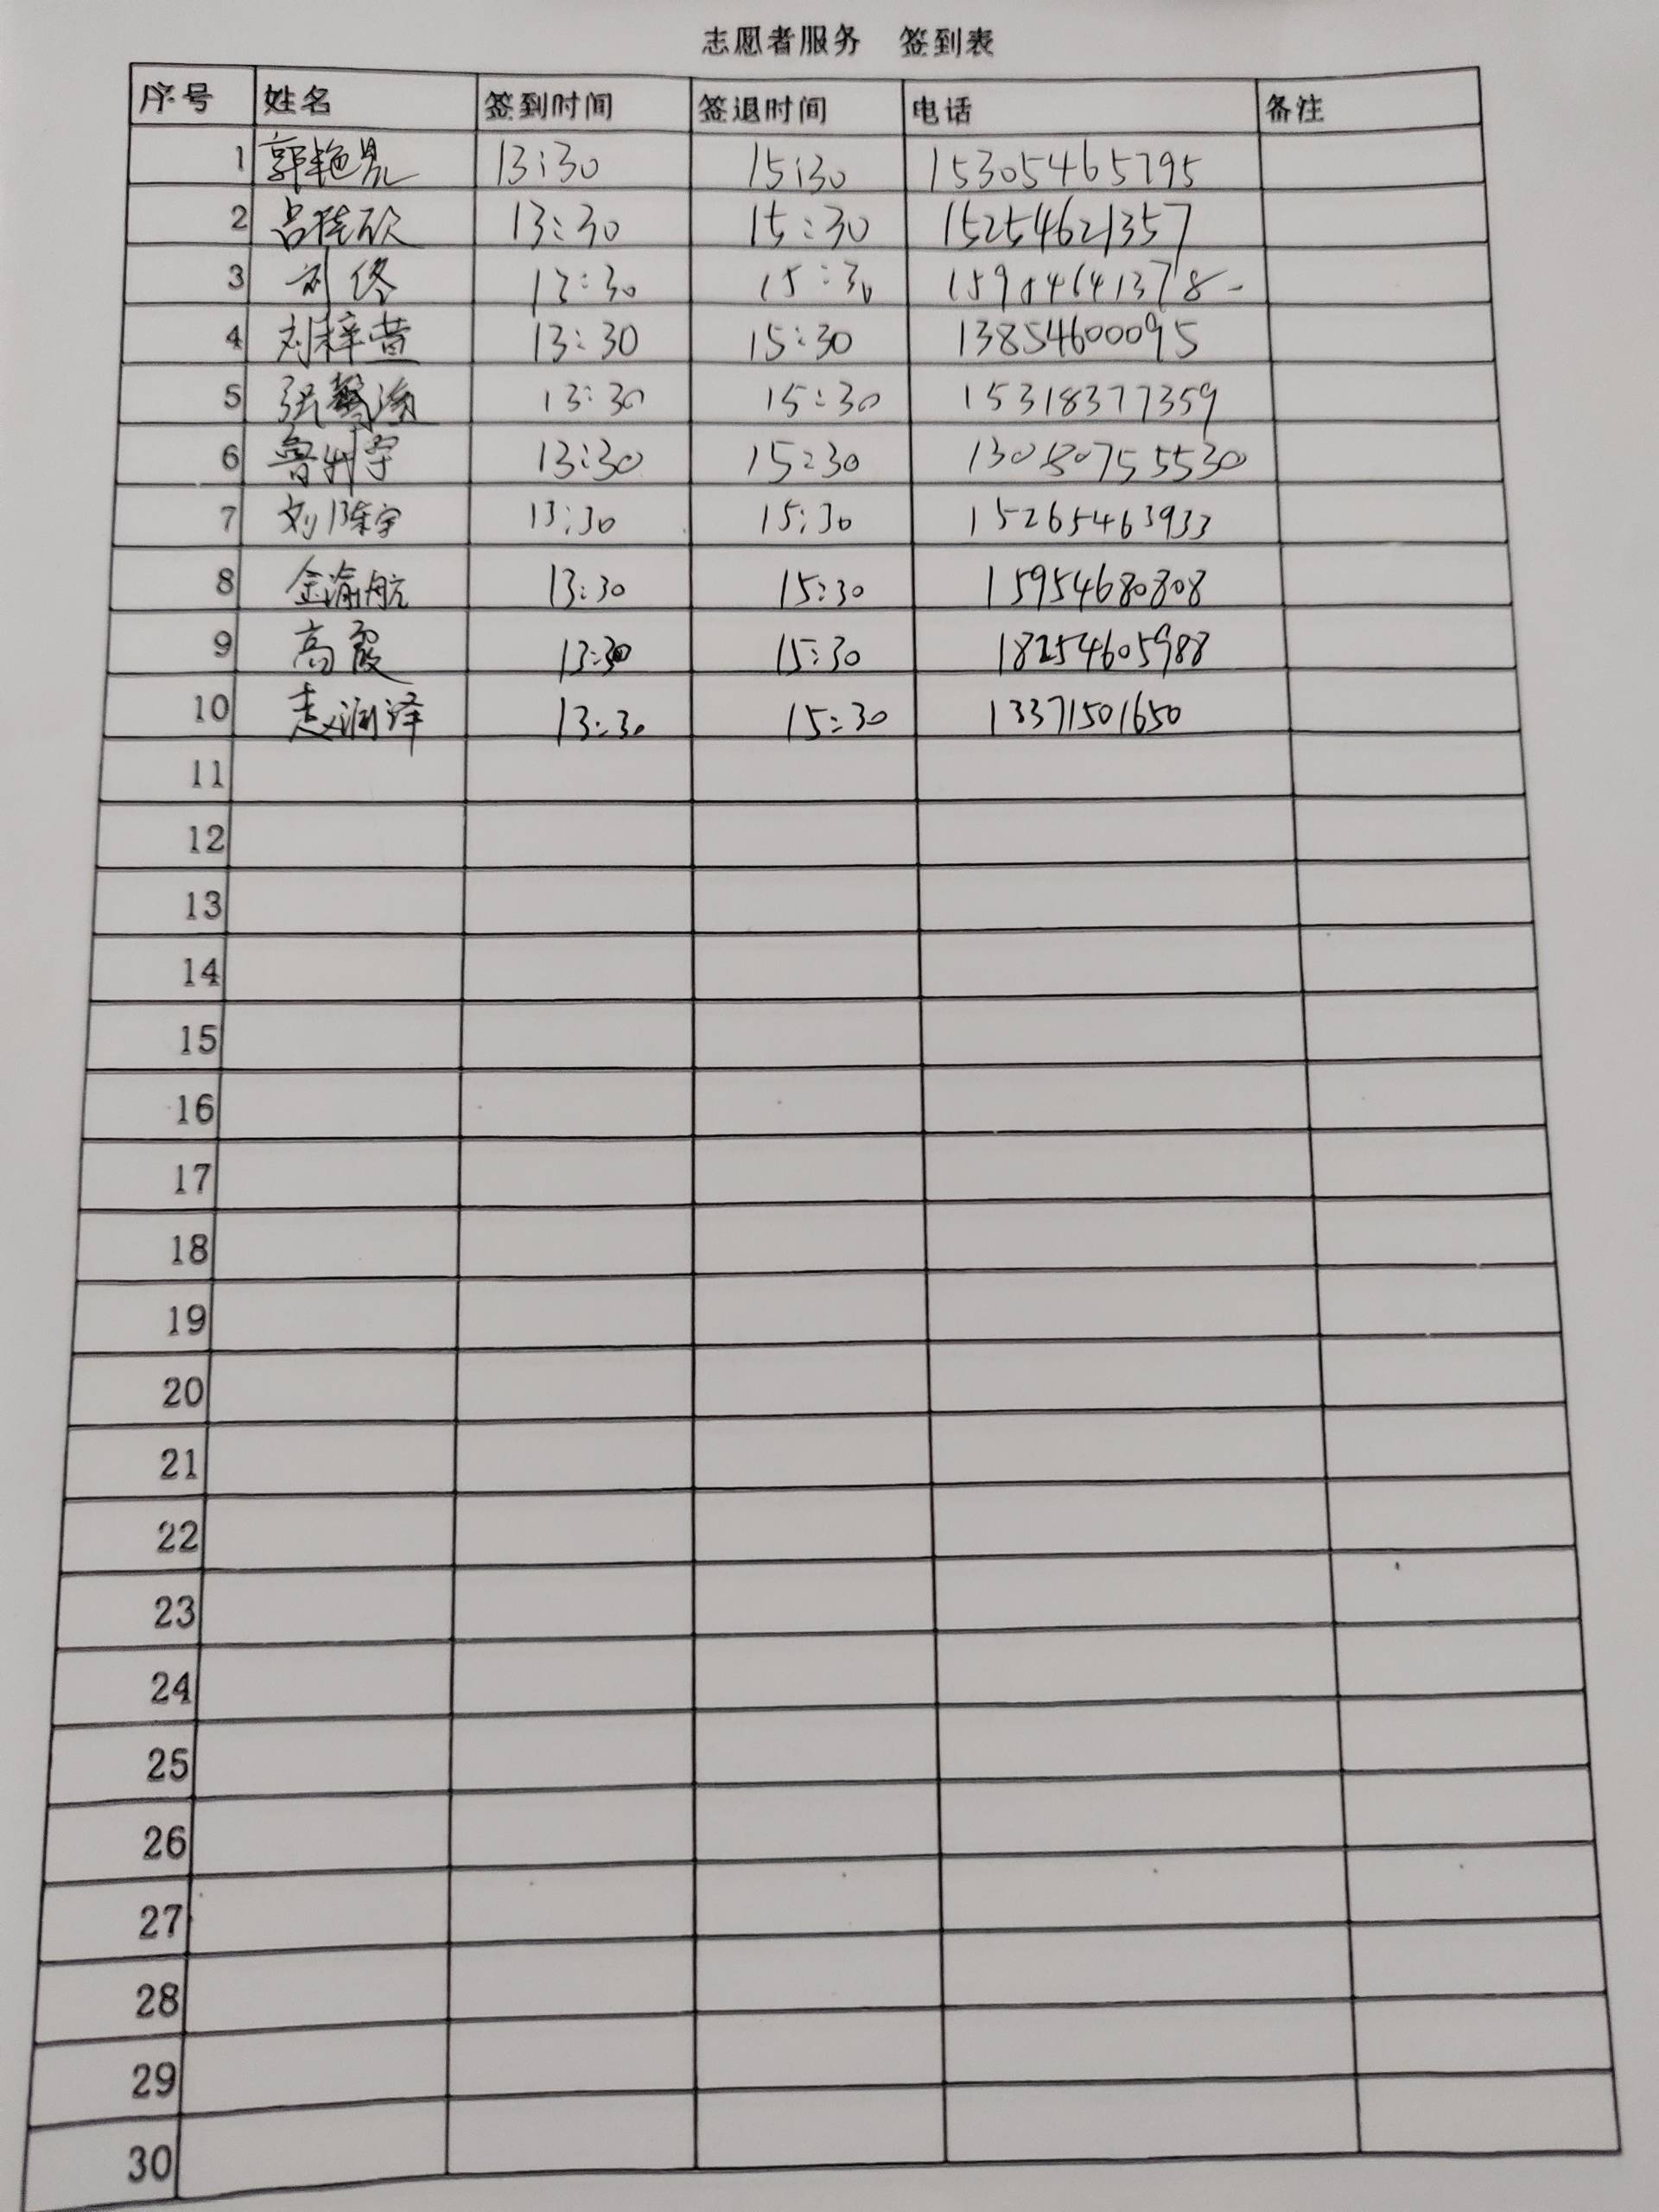 志愿者服务 签到表
序号 姓名 签到时间 签退时间 电话 备注
1 郭艳 13:30 15:30 15305465795
2 吕佳欣 13:30 15:30 15254621357
3 刘佟 13:30 15:30
4 刘梓萱 13:30 15:30 13854600095
5 张馨 13:30 15:30 15318377359
6 鲁 宇 13:30 15:30
7 刘陈宇 13:30 15:30 15265463933
8 金渝航 13:30 15:30 15954680808
9 高霞 13:30 15:30 18254605988
10 赵润泽 13:30 15:30 13371501650
11
12
13
14
15
16
17
18
19
20
21
22
23
24
25
26
27
28
29
30